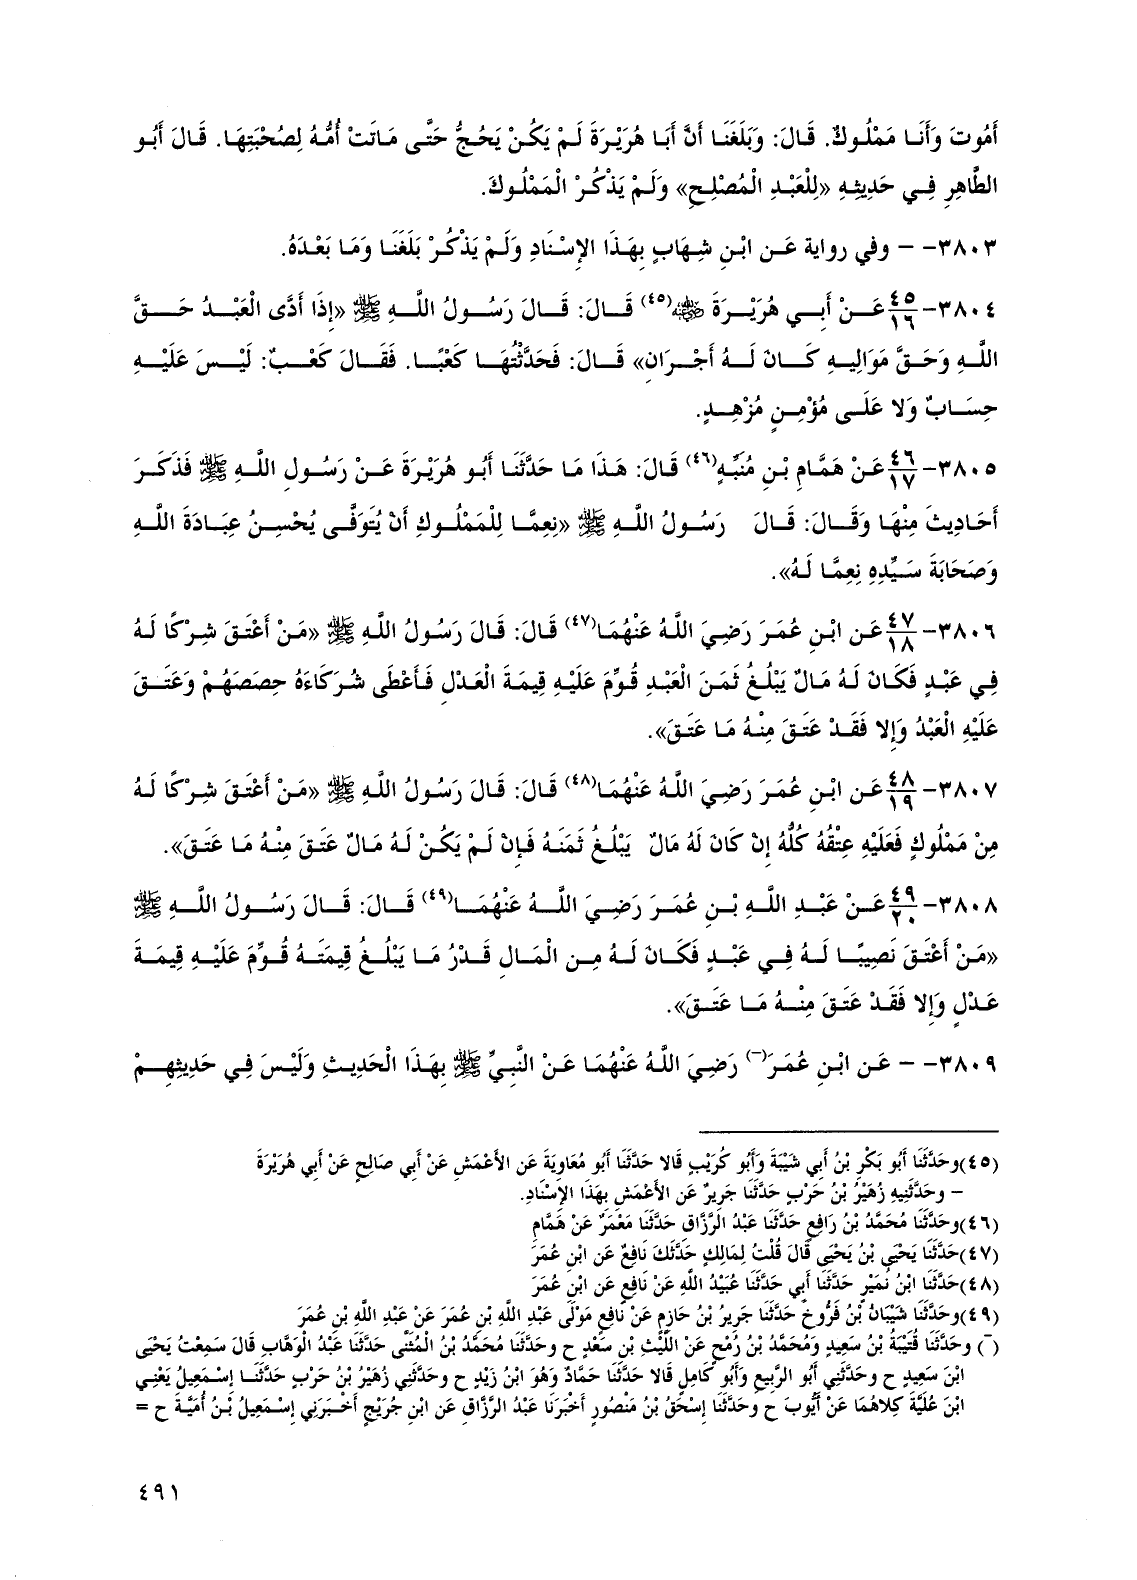 أَمُوتَ وَأَنَا مَمْلُوكٌ. قَالَ: وَبَلَغَنَا أَنَّ أَبَا هُرَيْرَةَ لَمْ يَكُنْ يَحُجُّ حَتَّى مَاتَتْ أُمُّهُ لِصُحْبَتِهَا. قَالَ أَبُو
الطَّاهِرِ فِي حَدِيثِهِ «لِلْعَبْدِ الْمُصْلِحِ» وَلَمْ يَذْكُرْ الْمَمْلُوكَ.
٣٨٠٣- – وفي رواية عَن ابْنِ شِهَابٍ بِهَذَا الإِسْنَادِ وَلَمْ يَذْكُرْ بَلَغَنَا وَمَا بَعْدَهُ.
٣٨٠٤- ٤٥/١٦ عَنْ أَبِي هُرَيْرَةَ ﷺ(٤٥) قَالَ: قَالَ رَسُولُ اللَّهِ ﷺ «إِذَا أَدَّى الْعَبْدُ حَقَّ
اللَّهِ وَحَقَّ مَوَالِيهِ كَانَ لَهُ أَجْرَانِ» قَالَ: فَحَدَّثْتُهَا كَعْبًا. فَقَالَ كَعْبٌ: لَيْسَ عَلَيْهِ
حِسَابٌ وَلا عَلَى مُؤْمِنٍ مُزْهِدٍ.
٣٨٠٥- ٤٦/١٧ عَنْ هَمَّامِ بْنِ مُنَبِّهٍ(٤٦) قَالَ: هَذَا مَا حَدَّثَنَا أَبُو هُرَيْرَةَ عَنْ رَسُولِ اللَّهِ ﷺ فَذَكَرَ
أَحَادِيثَ مِنْهَا وَقَالَ: قَالَ رَسُولُ اللَّهِ ﷺ «نِعِمَّا لِلْمَمْلُوكِ أَنْ يُتَوَفَّى يُحْسِنُ عِبَادَةَ اللَّهِ
وَصَحَابَةَ سَيِّدِهِ نِعِمَّا لَهُ».
٣٨٠٦- ٤٧/١٨ عَن ابْنِ عُمَرَ رَضِيَ اللَّهُ عَنْهُمَا(٤٧) قَالَ: قَالَ رَسُولُ اللَّهِ ﷺ «مَنْ أَعْتَقَ شِرْكًا لَهُ
فِي عَبْدٍ فَكَانَ لَهُ مَالٌ يَبْلُغُ ثَمَنَ الْعَبْدِ قُوِّمَ عَلَيْهِ قِيمَةَ الْعَدْلِ فَأَعْطَى شُرَكَاءَهُ حِصَصَهُمْ وَعَتَقَ
عَلَيْهِ الْعَبْدُ وَإِلا فَقَدْ عَتَقَ مِنْهُ مَا عَتَقَ».
٣٨٠٧- ٤٨/١٩ عَن ابْنِ عُمَرَ رَضِيَ اللَّهُ عَنْهُمَا(٤٨) قَالَ: قَالَ رَسُولُ اللَّهِ ﷺ «مَنْ أَعْتَقَ شِرْكًا لَهُ
مِنْ مَمْلُوكٍ فَعَلَيْهِ عِتْقُهُ كُلُّهُ إِنْ كَانَ لَهُ مَالٌ يَبْلُغُ ثَمَنَهُ فَإِنْ لَمْ يَكُنْ لَهُ مَالٌ عَتَقَ مِنْهُ مَا عَتَقَ».
٣٨٠٨- ٤٩/٢٠ عَنْ عَبْدِ اللَّهِ بْنِ عُمَرَ رَضِيَ اللَّهُ عَنْهُمَا(٤٩) قَالَ: قَالَ رَسُولُ اللَّهِ ﷺ
«مَنْ أَعْتَقَ نَصِيبًا لَهُ فِي عَبْدٍ فَكَانَ لَهُ مِن الْمَالِ قَدْرُ مَا يَبْلُغُ قِيمَتَهُ قُوِّمَ عَلَيْهِ قِيمَةَ
عَدْلٍ وَإِلا فَقَدْ عَتَقَ مِنْهُ مَا عَتَقَ».
٣٨٠٩- – عَن ابْنِ عُمَرَ(–) رَضِيَ اللَّهُ عَنْهُمَا عَنْ النَّبِيِّ ﷺ بِهَذَا الْحَدِيثِ وَلَيْسَ فِي حَدِيثِهِمْ
(٤٥)وحَدَّثَنَا أَبُو بَكْرِ بْنُ أَبِي شَيْبَةَ وَأَبُو كُرَيْبٍ قَالا حَدَّثَنَا أَبُو مُعَاوِيَةَ عَن الأَعْمَشِ عَنْ أَبِي صَالِحٍ عَنْ أَبِي هُرَيْرَةَ
– وحَدَّثَنِيهِ زُهَيْرُ بْنُ حَرْبٍ حَدَّثَنَا جَرِيرٌ عَن الأَعْمَشِ بِهَذَا الإِسْنَادِ.
(٤٦)وحَدَّثَنَا مُحَمَّدُ بْنُ رَافِعٍ حَدَّثَنَا عَبْدُ الرَّزَّاقِ حَدَّثَنَا مَعْمَرٌ عَنْ هَمَّامِ
(٤٧)حَدَّثَنَا يَحْيَى بْنُ يَحْيَى قَالَ قُلْتُ لِمَالِكٍ حَدَّثَكَ نَافِعٌ عَن ابْنِ عُمَرَ
(٤٨)حَدَّثَنَا ابْنُ نُمَيْرٍ حَدَّثَنَا أَبِي حَدَّثَنَا عُبَيْدُ اللَّهِ عَنْ نَافِعٍ عَن ابْنِ عُمَرَ
(٤٩)وحَدَّثَنَا شَيْبَانُ بْنُ فَرُّوخَ حَدَّثَنَا جَرِيرُ بْنُ حَازِمٍ عَنْ نَافِعٍ مَوْلَى عَبْدِ اللَّهِ بْنِ عُمَرَ عَنْ عَبْدِ اللَّهِ بْنِ عُمَرَ
(–) وحَدَّثَنَا قُتَيْبَةُ بْنُ سَعِيدٍ وَمُحَمَّدُ بْنُ رُمْحٍ عَنْ اللَّيْثِ بْنِ سَعْدٍ ح وحَدَّثَنَا مُحَمَّدُ بْنُ الْمُثَنَّى حَدَّثَنَا عَبْدُ الْوَهَّابِ قَالَ سَمِعْتُ يَحْيَى
ابْنَ سَعِيدٍ ح وحَدَّثَنِي أَبُو الرَّبِيعِ وَأَبُو كَامِلٍ قَالا حَدَّثَنَا حَمَّادٌ وَهُوَ ابْنُ زَيْدٍ ح وحَدَّثَنِي زُهَيْرُ بْنُ حَرْبٍ حَدَّثَنَا إِسْمَعِيلُ يَعْنِي
ابْنَ عُلَيَّةَ كِلاهُمَا عَنْ أَيُّوبَ ح وحَدَّثَنَا إِسْحَقُ بْنُ مَنْصُورٍ أَخْبَرَنَا عَبْدُ الرَّزَّاقِ عَن ابْنِ جُرَيْجٍ أَخْبَرَنِي إِسْمَعِيلُ بْنُ أُمَيَّةَ ح =
٤٩١